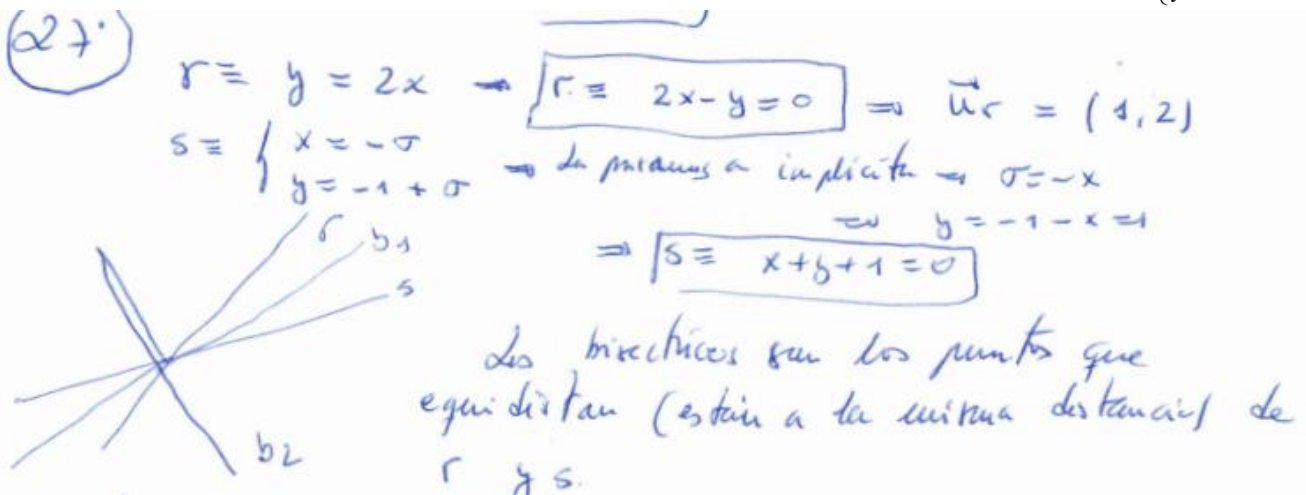 27.
r ≡ y = 2x → r ≡ 2x - y = 0 ⇒ u⃗r = (1, 2)
s ≡ { x = -σ
y = -1 + σ → La pasamos a implícita → σ = -x
⇒ y = -1 - x ⇒
⇒ s ≡ x + y + 1 = 0
r
b1
s
b2
Las bisectrices son los puntos que
equidistan (están a la misma distancia) de
r y s.